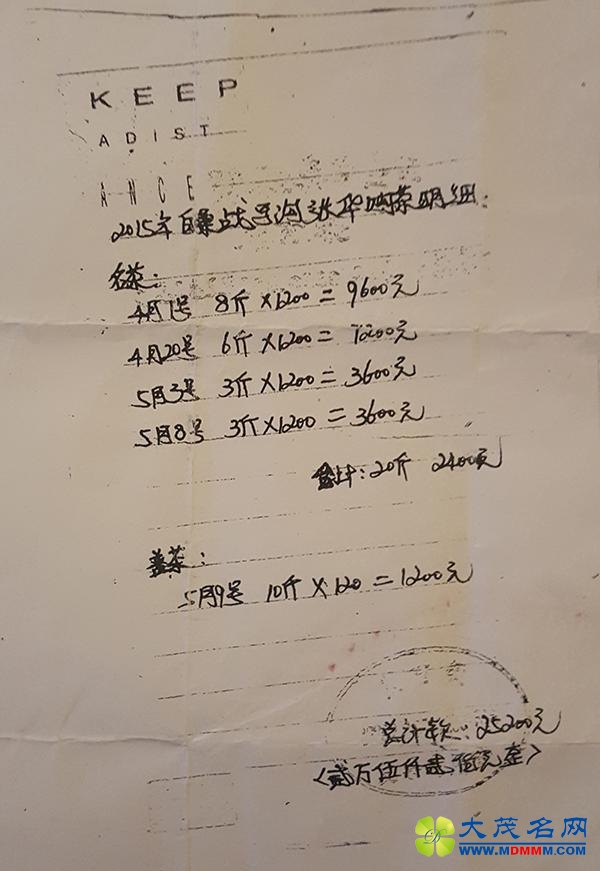 KEEP
ADIST
ANCE
2015年 张华购茶明细:
名茶:
4月1号 8斤×1200= 9600元
4月20号 6斤×1200= 7200元
5月3号 3斤×1200=3600元
5月8号 3斤×1200=3600元
合计:20斤 24000元
茶:
5月9号 10斤×120=1200元
总计款:25200元
(贰万伍仟贰佰元整)
大茂名网
WWW.MDMMM.COM